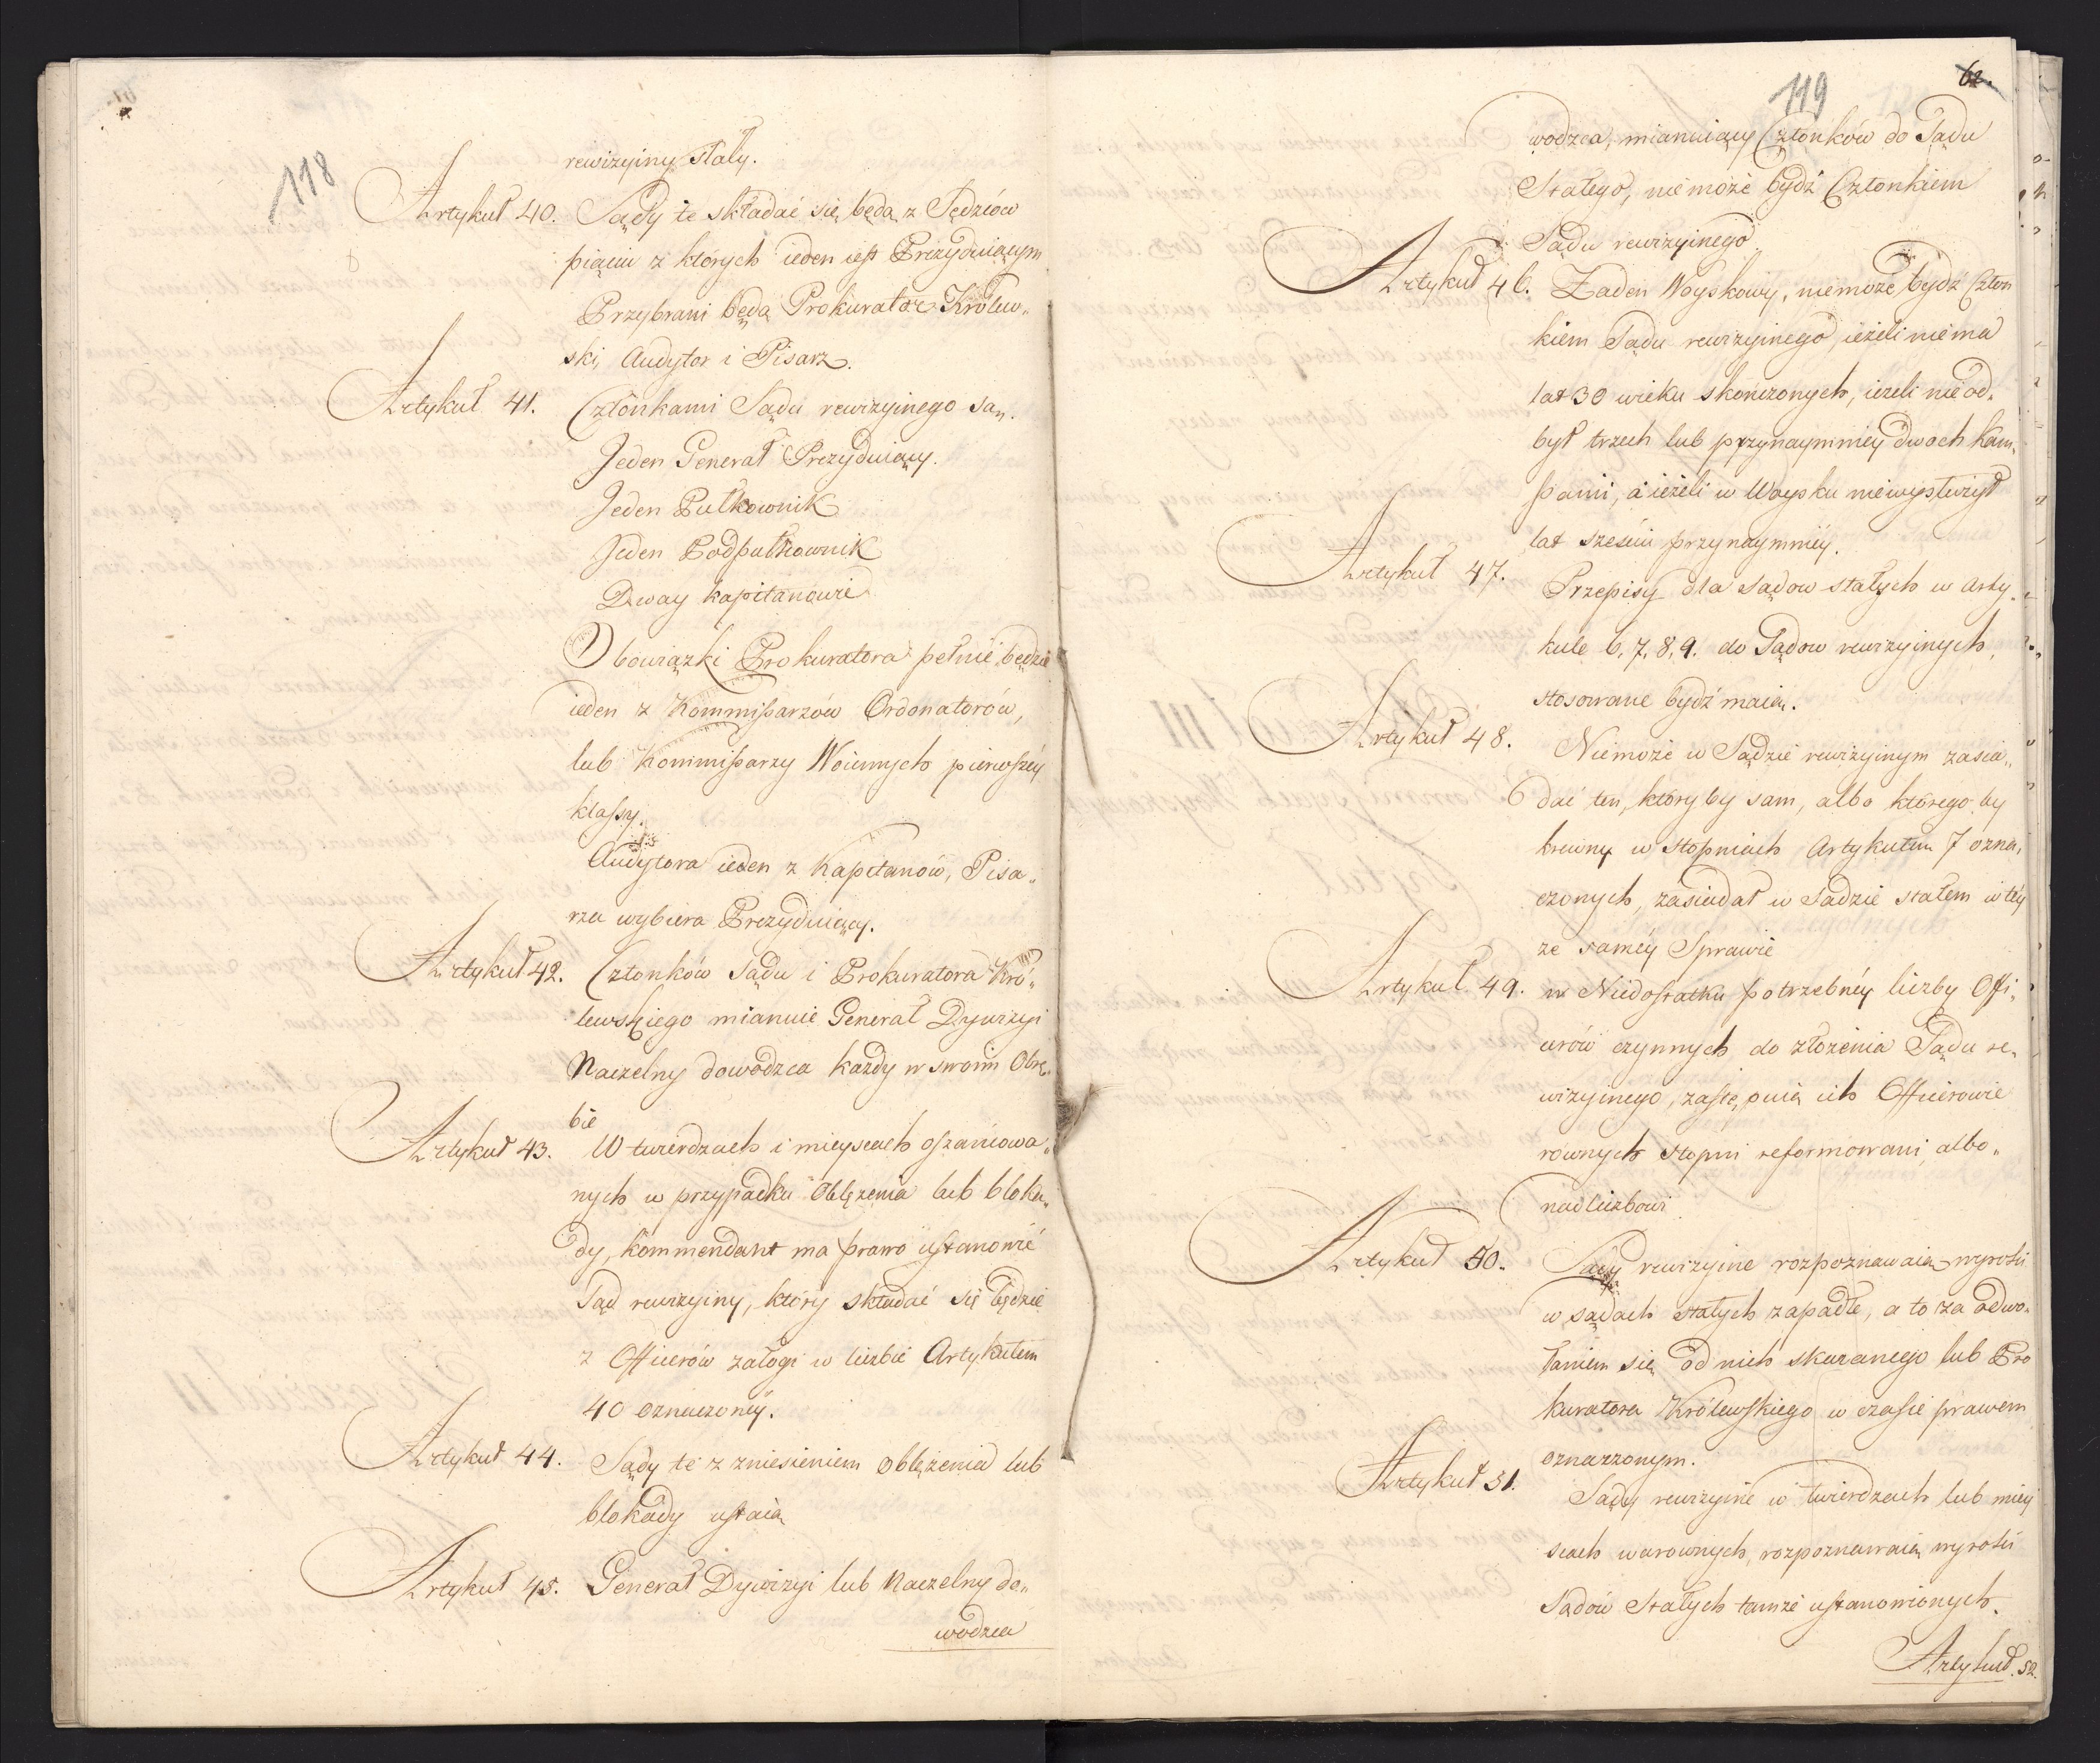 118
rewizyiny stały.
Artykuł 40. Sądy te składać się będą z Sędziów
pięciu z których ieden iest Prezyduiącym
Przybrani będą Prokurator Królew„
ski, Audytor i Pisarz.
Artykuł 41. Członkami Sądu rewizyinego są.
Jeden Generał Prezyduiący.
Jeden Pułkownik
Jeden Podpułkownik
Dway Kapitanowie
Obowiązki Prokuratora pełnić będzie
ieden z Kommissarzów Ordonatorów,
lub Kommissarzy Woiennych pierwszéy
klassy.
Audytora ieden z Kapitanów, Pisa„
rza wybiera Prezyduiący.
Artykuł 42. Członków Sądu i Prokuratora Kró„
lewskiego mianuie Generał Dywizyi
Naczelny dowodzca każdy w swoim Obrę„
bie
Artykuł 43. W twierdzach i mieyscach oszańcowa„
nych w przypadku Oblężenia lub bloka„
dy, kommendant ma prawo ustanowić
Sąd rewizyiny, który składać się będzie
z Officerów załogi w liczbie Artykułem
40 oznaczonéy.
Artykuł 44. Sądy te z zniesieniem oblężenia lub
blokady ustaią
Artykuł 45. Generał Dywizyi lub Naczelny do„
wodzca
119
62.
wodzca, mianuiący Członków do Sądu
Stałego, nie może bydź Członkiem
Sądu rewizyinego.
Artykuł 46. Żaden Woyskowy, nie może bydź Człon
kiem Sądu rewizyinego, ieżeli nie ma
lat 30 wieku skończonych, ieżeli nie od„
był trzech lub przynaymniey dwóch kam„
panii, a ieżeli w Woysku nie wysłużył
lat sześciu przynaymniéy.
Artykuł 47. Przepisy dla Sądow stałych w Arty„
kule 6, 7, 8, 9. do Sądow rewizyinych,
stosowane bydź maią.
Artykuł 48. Nie może w Sądzie rewizyinym zasia„
dać ten, który by sam, albo którego by
krewny w stopniach Artykułem 7 ozna„
czonych, zasiadał w Sądzie stałem w téy
że saméy Sprawie
Artykuł 49. w Niedostatku potrzebnéy liczby Offi„
cerów czynnych do złożenia Sądu re„
wizyinego, zastępuią ich Officerowie
rownych stopni reformowani, albo„
nadliczbowi
Artykuł 50. Sądy rewizyine rozpoznawaią wyroki
w sądach stałych zapadłe, a to za odwo„
łaniem się od nich skazanego lub Pro
kuratora Królewskiego w czasie prawem
oznaczonym.
Artykuł 51. Sądy rewizyine w twierdzach lub miey
scach warownych, rozpoznawaią wyroki
Sądów Stałych tamże ustanowionych.
Artykuł. 52.